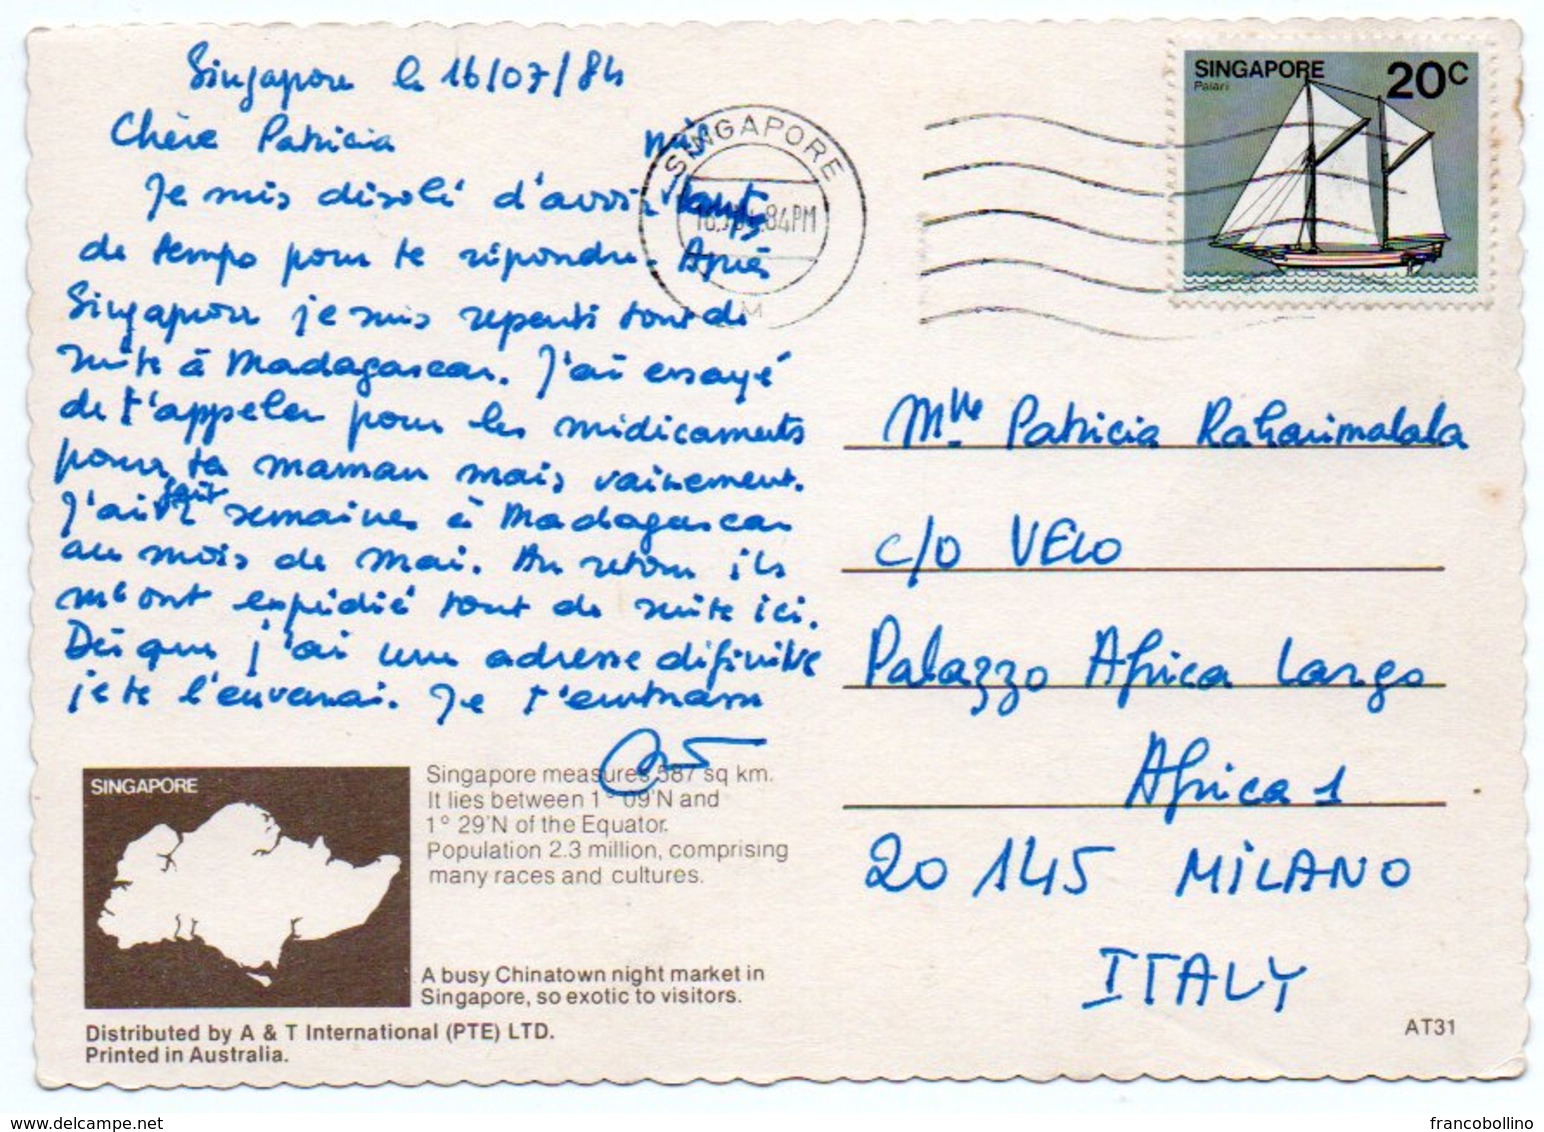 Singapore le 16/07/84
Chère Patricia
Je suis désolé d'avoir mis tant
de temps pour te répondre. Après
Singapour je suis reparti tout de
suite à Madagascar. J'ai essayé
de t'appeler pour les médicaments
pour ta maman mais vainement.
J'ai fait 2 semaines à Madagascar
au mois de Mai. Au retour ils
m'ont expédié tout de suite ici.
Dès que j'ai une adresse définitive
je te l'enverrai. Je t'embrasse
SINGAPORE
Singapore measures 587 sq km.
It lies between 1° 09'N and
1° 29'N of the Equator.
Population 2.3 million, comprising
many races and cultures.
A busy Chinatown night market in
Singapore, so exotic to visitors.
Distributed by A & T International (PTE) LTD.
Printed in Australia.
SINGAPORE
84PM
SINGAPORE 20C
Palari
Mlle Patricia Raharimalala
c/o VELO
Palazzo Africa Largo
Africa 1
20145 MILANO
ITALY
AT31
delcampe.net
francobollino